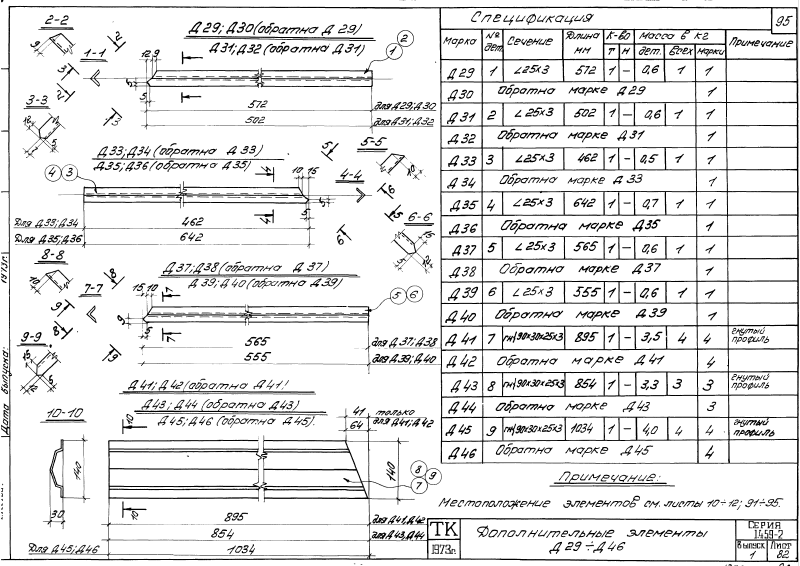 95
2-2
Д29; Д30 (обратна Д 29)
Д31; Д32 (обратна Д31)
2
1
1-1
12 9
3-3
5
572
для Д29; Д30
502
для Д31; Д32
Д33; Д34 (обратна Д 33)
Д35; Д36 (обратна Д35)
4 3
10 15
4-4
5-5
6-6
Для Д33; Д34
462
Для Д35; Д36
642
8-8
7-7
9-9
Д37; Д38 (обратна Д 37)
Д39; Д40 (обратна Д39)
15 10
5 6
565
для Д37; Д38
555
для Д39; Д40
Д41; Д42 (обратна Д41)
Д43; Д44 (обратна Д43)
Д45; Д46 (обратна Д45).
41 только
64 для Д41; Д42
10-10
140
30
10
140
8 9
7
895
для Д41; Д42
854
для Д43; Д44
Для Д45; Д46
1034
Спецификация
Марка № дет. Сечение Длина мм К-во т н Масса в кг дет. всех марки Примечание
Д29 1 ∟25×3 572 1 – 0,6 1 1
Д30 Обратна марке Д29 1
Д31 2 ∟25×3 502 1 – 0,6 1 1
Д32 Обратна марке Д31 1
Д33 3 ∟25×3 462 1 – 0,5 1 1
Д34 Обратна марке Д33 1
Д35 4 ∟25×3 642 1 – 0,7 1 1
Д36 Обратна марке Д35 1
Д37 5 ∟25×3 565 1 – 0,6 1 1
Д38 Обратна марке Д37 1
Д39 6 ∟25×3 555 1 – 0,6 1 1
Д40 Обратна марке Д39 1
Д41 7 гн[90×30×25×3 895 1 – 3,5 4 4 гнутый профиль
Д42 Обратна марке Д41 4
Д43 8 гн[90×30×25×3 854 1 – 3,3 3 3 гнутый профиль
Д44 Обратна марке Д43 3
Д45 9 гн[90×30×25×3 1034 1 – 4,0 4 4 гнутый профиль
Д46 Обратна марке Д45 4
Примечание:
Местоположение элементов см. листы 10÷12; 91÷95.
ТК
1973г.
Дополнительные элементы
Д29÷Д46
Серия
1.459-2
Выпуск 1
Лист 82
Дата выпуска: 1973г.